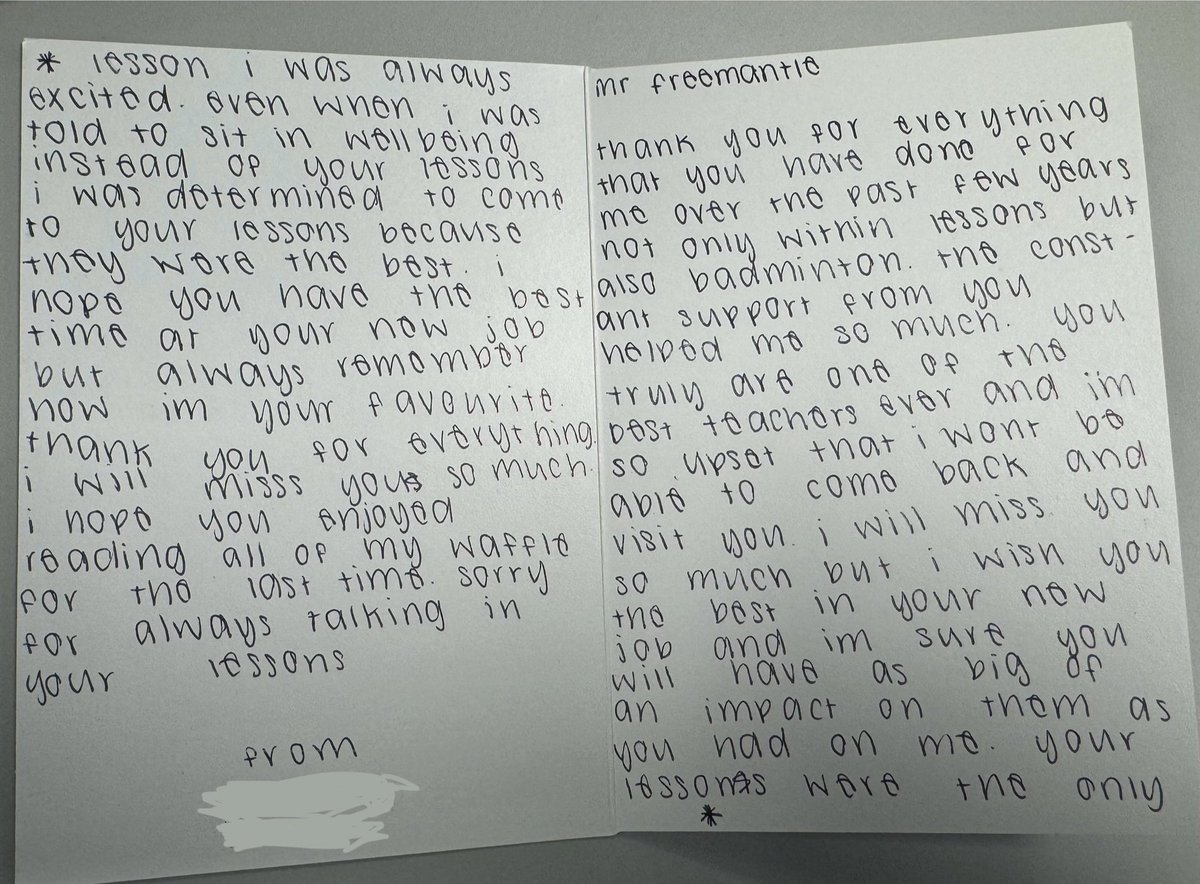 mr freemantle
thank you for everything
that you have done for
me over the past few years
not only within lessons but
also badminton. the const-
ant support from you
helped me so much. you
truly are one of the
best teachers ever and im
so upset that i wont be
able to come back and
visit you. i will miss you
so much but i wish you
the best in your new
job and im sure you
will have as big of
an impact on them as
you had on me. your
lessons were the only
*
* lesson i was always
excited. even when i was
told to sit in wellbeing
instead of your lessons
i was determined to come
to your lessons because
they were the best. i
hope you have the best
time at your new job
but always remember
how im your favourite.
thank you for everything.
i will misss you so much.
i hope you enjoyed
reading all of my waffle
for the last time. sorry
for always talking in
your lessons
from